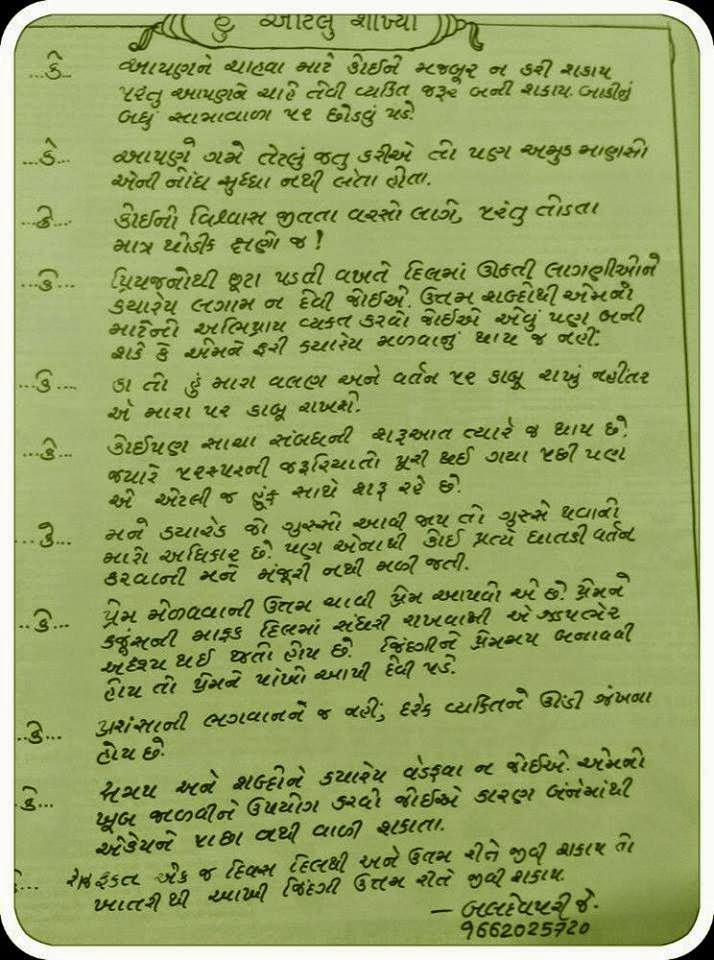 હું આટલું શીખ્યો
...કે... આપણને ચાહવા માટે કોઇને મજબૂર ન કરી શકાય
પરંતુ આપણને ચાહે તેવી વ્યકિત જરૂર બની શકાય. બાકીનું
બધું સામાવાળા પર છોડવું પડે.
...કે... આપણે ગમે તેટલું જતુ કરીએ તો પણ અમુક માણસો
એની નોંધ સુધ્ધા નથી લેતા હોતા.
...કે... કોઇનો વિશ્વાસ જીતતા વરસો લાગે, પરંતુ તોડતા
માત્ર થોડીક ક્ષણો જ !
...કે... પ્રિયજનોથી છૂટા પડતી વખતે દિલમાં ઊઠતી લાગણીઓને
કયારેય લગામ ન દેવી જોઇએ. ઉત્તમ શબ્દોથી એમનો
માટેનો અભિપ્રાય વ્યકત કરવો જોઇએ એવું પણ બની
શકે કે એમને ફરી કયારેય મળવાનું થાય જ નહીં.
...કે... કા તો હું મારા વલણ અને વર્તન પર કાબૂ રાખું નહીતર
એ મારા પર કાબૂ રાખશે.
...કે... કોઇપણ સાચા સંબધની શરૂઆત ત્યારે જ થાય છે.
જયારે પરસ્પરની જરૂરિયાતો પૂરી થઈ ગયા પછી પણ
એ એટલી જ હૂંફ સાથે શરૂ રહે છે.
...કે... મને કયારેક જો ગુસ્સો આવી જાય તો ગુસ્સે થવાનો
મારો અધિકાર છે. પણ એનાથી કોઈ પ્રત્યે ઘાતકી વર્તન
કરવાની મને મંજૂરી નથી મળી જતી.
...કે... પ્રેમ મેળવવાની ઉત્તમ ચાવી પ્રેમ આપવો એ છે. પ્રેમને
કજૂંસની માફક દિલમાં સંઘરી રાખવામી એ ઝડપભેર
અદ્રશ્ય થઈ જતો હોય છે. જિંદગીને પ્રેમમય બનાવવી
હોય તો પ્રેમને પાંખો આપી દેવી પડે.
...કે... પ્રશંસાની ભગવાનને જ નહીં, દરેક વ્યકિતને ઊંડી ઝંખના
હોય છે.
કે... સમય અને શબ્દોને કયારેય વેડફવા ન જોઈએ. એમનો
ખૂબ જાળવીને ઉપયોગ કરવો જોઈએ કારણ બંનેમાંથી
એકેયને પાછા નથી વાળી શકાતા.
કે... રોજ ફકત એક જ દિવસ દિલથી અને ઉત્તમ રીતે જીવી શકાય તો
ખાતરીથી આખી જિંદગી ઉત્તમ રીતે જીવી શકાય.
— બલદેવપરી જે.
9662025720